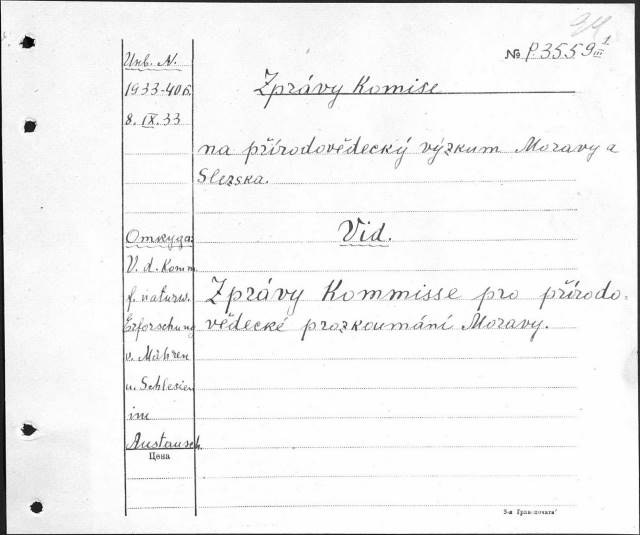 24
№ P.3559 1/III
Инв. N.
1933-406.
8. IX. 33
Zprávy Komise
na přírodovědecký výzkum Moravy a
Slezska.
Vid.
Zprávy Kommisse pro přírodo-
vědecké prozkoumání Moravy.
Откуда:
V. d. Komm.
f. naturw.
Erforschung
v. Mähren
u. Schlesien
im
Austausch.
Цена
5-я Гравпочати